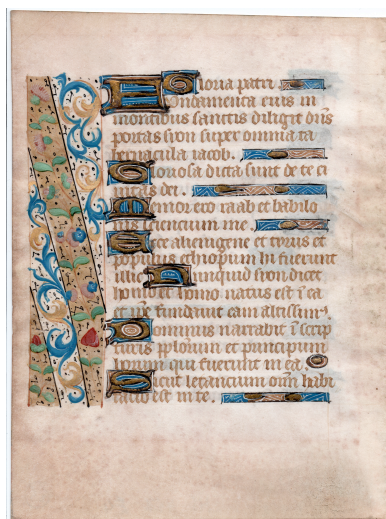 Gloria patri
Fundamenta eius in
montibus sanctis diligit dñs
portas syon super omnia ta
bernacula iacob.
Gloriosa dicta sunt de te ci
uitas dei.
Memor ero raab et babilo
nis sciencium me.
Ecce alienigene et tyrus et
populus ethiopum hi fuerunt
illic Nunquid syon dicet
homo et homo natus est ī ea
et ip̄e fundauit eam altissimꝰ.
Dominus narrabit ī scrip
turis pplorum et principum
horum qui fuerunt in ea.
Sicut letancium om̄ habi
tacio est in te.